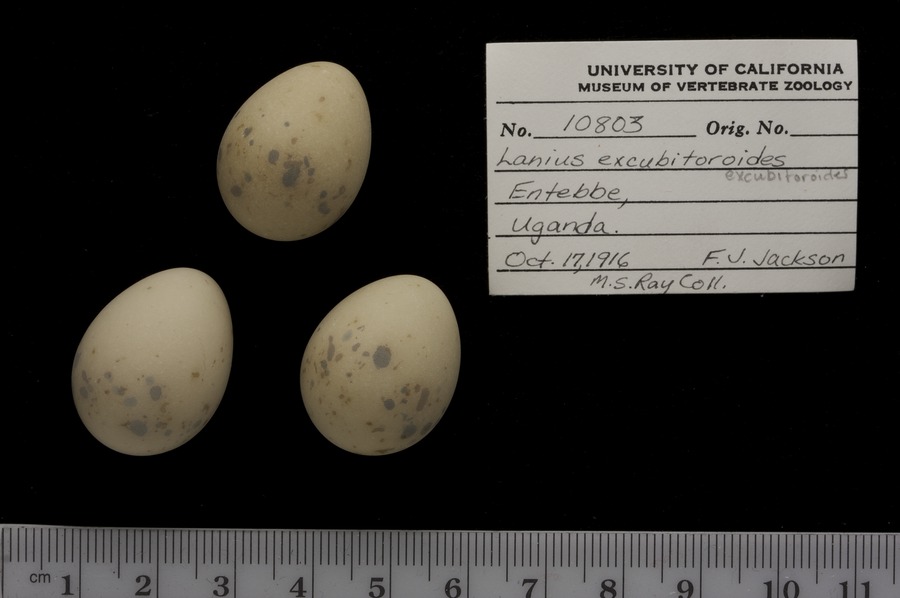 UNIVERSITY OF CALIFORNIA
MUSEUM OF VERTEBRATE ZOOLOGY
No. 10803 Orig. No.
Lanius excubitoroides
excubitoroides
Entebbe,
Uganda.
Oct. 17, 1916 F. J. Jackson
M.S. Ray Coll.
cm 1 2 3 4 5 6 7 8 9 10 11